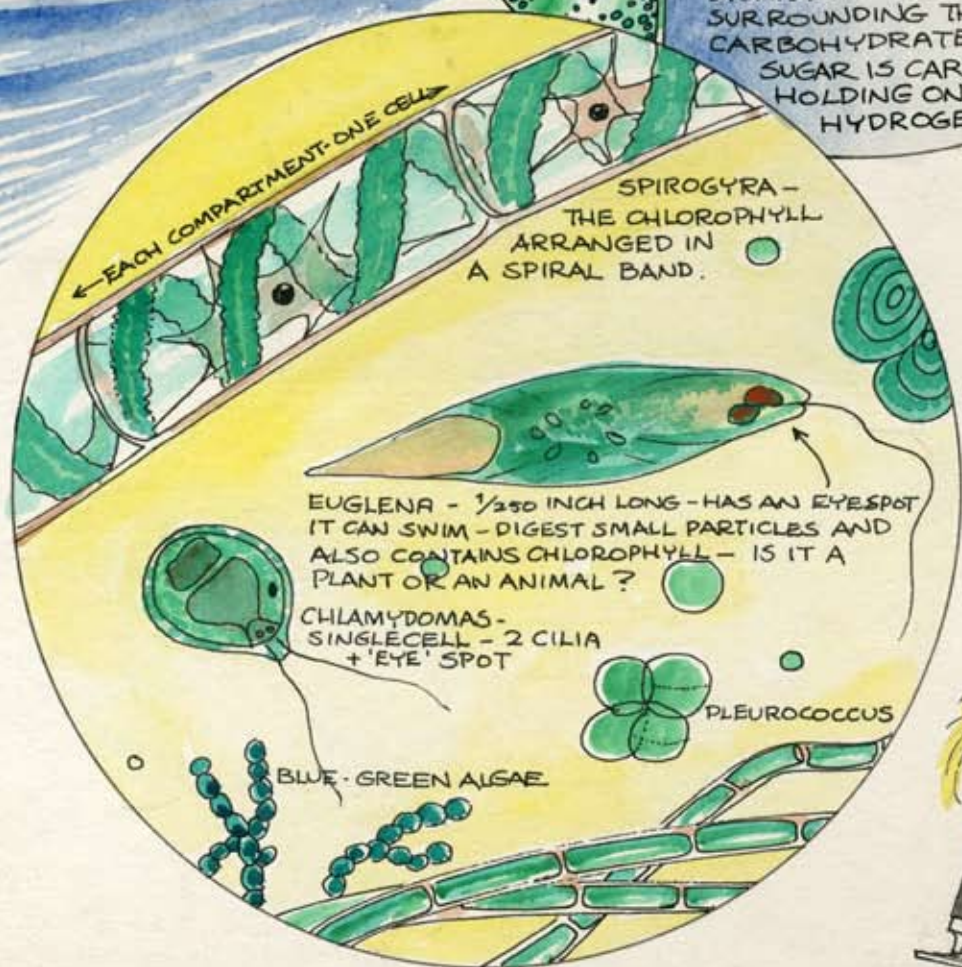 SURROUNDING
CARBOHYDRATE
SUGAR IS
HOLDING
←EACH COMPARTMENT-ONE CELL→
SPIROGYRA –
THE CHLOROPHYLL
ARRANGED IN
A SPIRAL BAND.
EUGLENA – 1/250 INCH LONG – HAS AN EYESPOT
IT CAN SWIM – DIGEST SMALL PARTICLES AND
ALSO CONTAINS CHLOROPHYLL – IS IT A
PLANT OR AN ANIMAL ?
CHLAMYDOMAS-
SINGLECELL – 2 CILIA
+ 'EYE' SPOT
PLEUROCOCCUS
BLUE-GREEN ALGAE